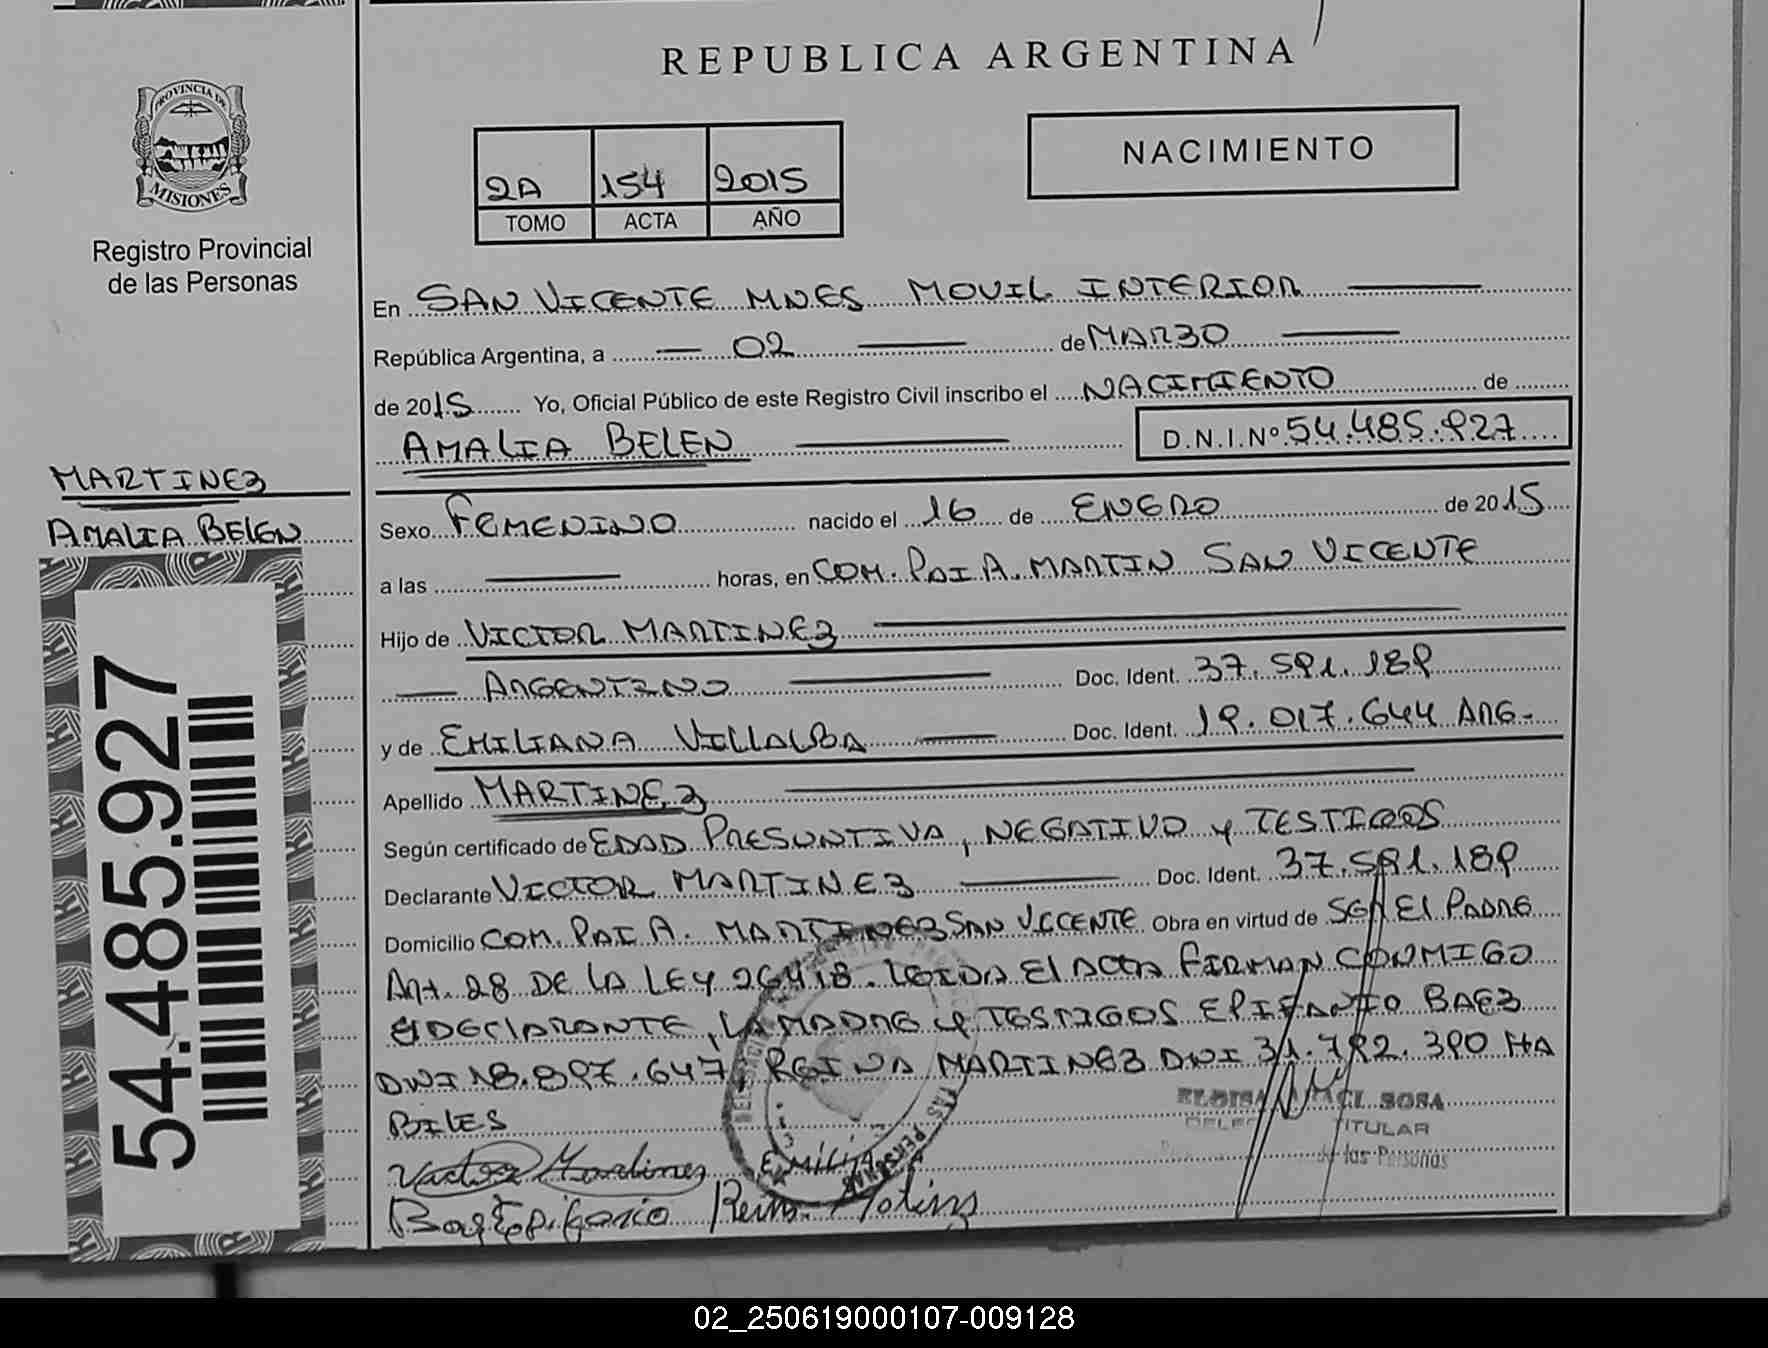 REPUBLICA ARGENTINA
PROVINCIA DE
MISIONES
Registro Provincial
de las Personas
NACIMIENTO
2A 154 2015
TOMO ACTA AÑO
En SAN VICENTE MNES MOVIL INTERIOR
República Argentina, a 02 de MARZO
de 2015 Yo, Oficial Público de este Registro Civil inscribo el NACIMIENTO de
AMALIA BELEN D.N.I.Nº 54.485.927
MARTINEZ
AMALIA BELEN
Sexo FEMENINO nacido el 16 de ENERO de 2015
a las horas, en COM. PAI A. MARTIN SAN VICENTE
Hijo de VICTOR MARTINEZ
ARGENTINO Doc. Ident. 37.591.189
y de EMILIANA VILLALBA Doc. Ident. 19.017.644 ARG.
Apellido MARTINEZ
Según certificado de EDAD PRESUNTIVA, NEGATIVO y TESTIGOS
Declarante VICTOR MARTINEZ Doc. Ident. 37.591.189
Domicilio COM. PAI A. MARTINEZ SAN VICENTE Obra en virtud de SGA El PADRE
Art. 28 DE LA LEY 26418. LEIDA El ACTA FIRMAN CONMIGO
El DECLARANTE, LA MADRE y TESTIGOS EPIFANIO BAEZ
DNI 18.897.647, REINA MARTINEZ DNI 31.792.390 HA
BILES
54.485.927
Victor Martinez
ELOISA SOSA
TITULAR
de las Personas
02_250619000107-009128